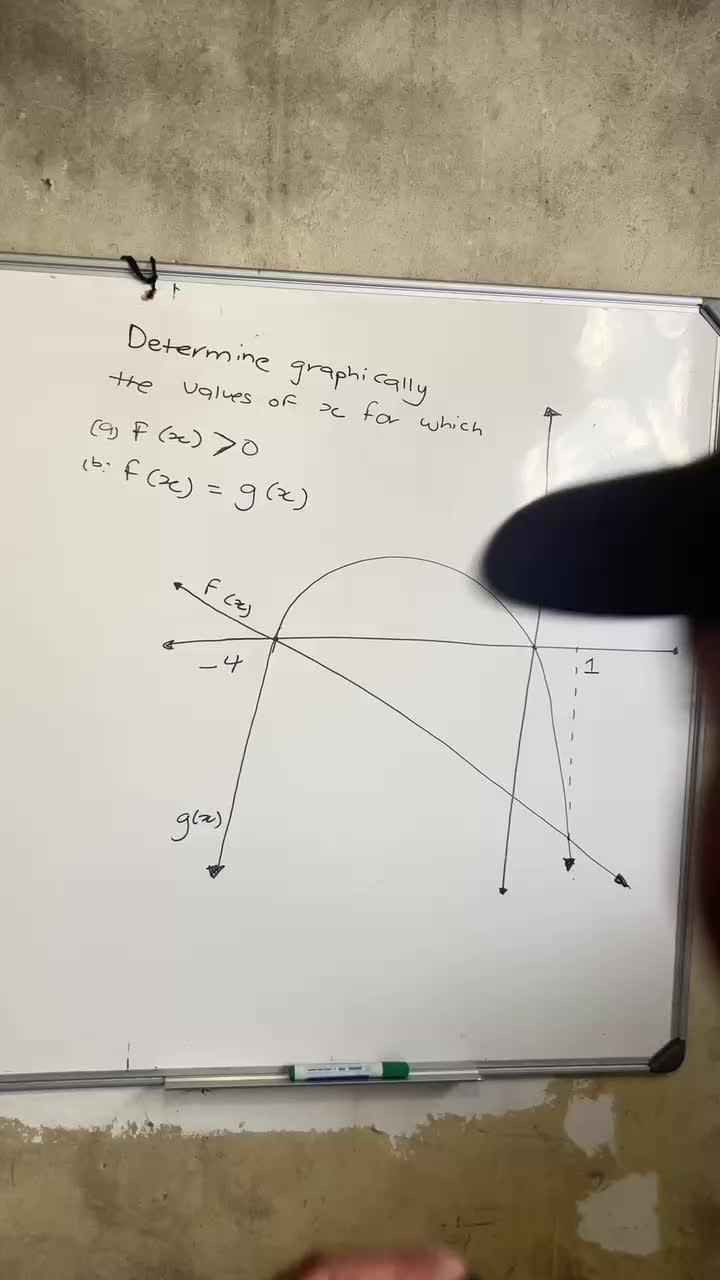 Determine graphically
the values of x for which
(a) f(x) > 0
(b: f(x) = g(x)
f(x)
-4
1
g(x)